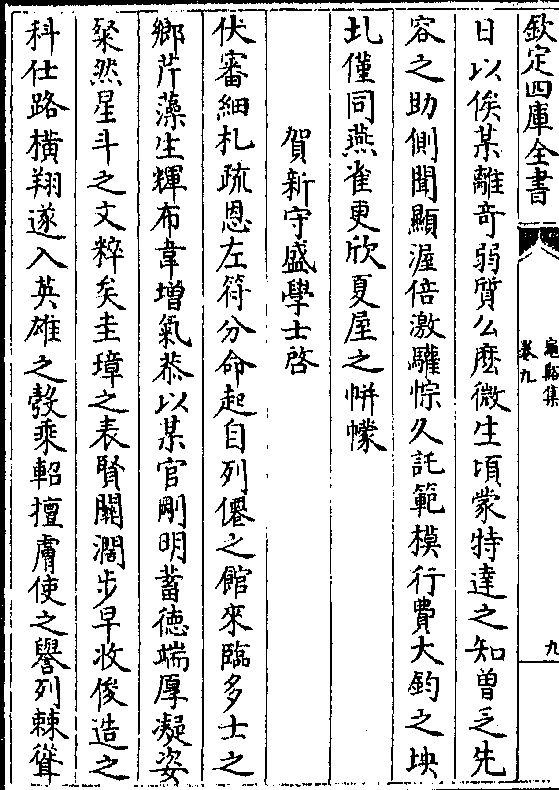 欽定四庫全書
龜谿集
卷九
九
日以俟某離奇弱質么麽微生頃蒙特達之知曽乏先
容之助側聞顯渥倍激驩悰久託範模行費大鈞之坱
圠僅同燕雀更欣夏屋之帡幪
賀新守盛學士啓
伏審細札疏恩左符分命起自列僊之館來臨多士之
鄉芹藻生輝布韋增氣恭以某官剛明蓄徳端厚凝姿
粲然星斗之文粹矣圭璋之表賢關濶步早收俊造之
科仕路横翔遂入英雄之彀乘軺擅膚使之譽列棘聳